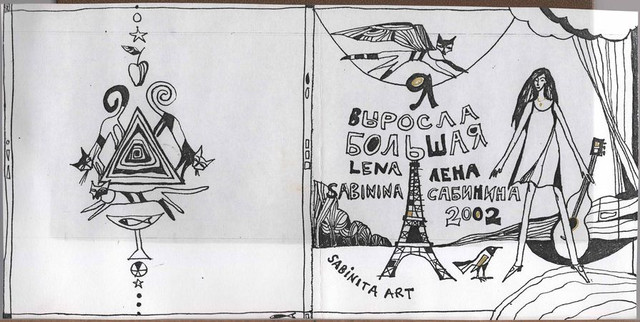 Я
ВЫРОСЛА
БОЛЬШАЯ
LENA ЛЕНА
SABININA САБИНИНА
2002
SABINITA ART